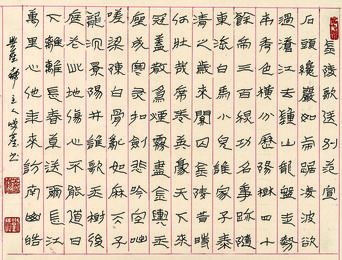 金陵歌送別范宣
石頭巉巖如虎踞凌波欲
過滄江去鍾山龍盤走勢
來秀色橫分歷陽樹四十
餘帝三百秋功名事跡隨
東流白馬小兒誰家子泰
清之歲來關囚金陵昔時
何壯哉席卷英豪天下來
冠蓋散為煙霧盡金輿玉
座成寒灰扣劍悲吟空咄
嗟梁陳白骨亂如麻天子
龍沉景陽井誰歌玉樹後
庭花此地傷心不能道目
下離離長春草送爾長江
萬里心他年來訪南幽皓